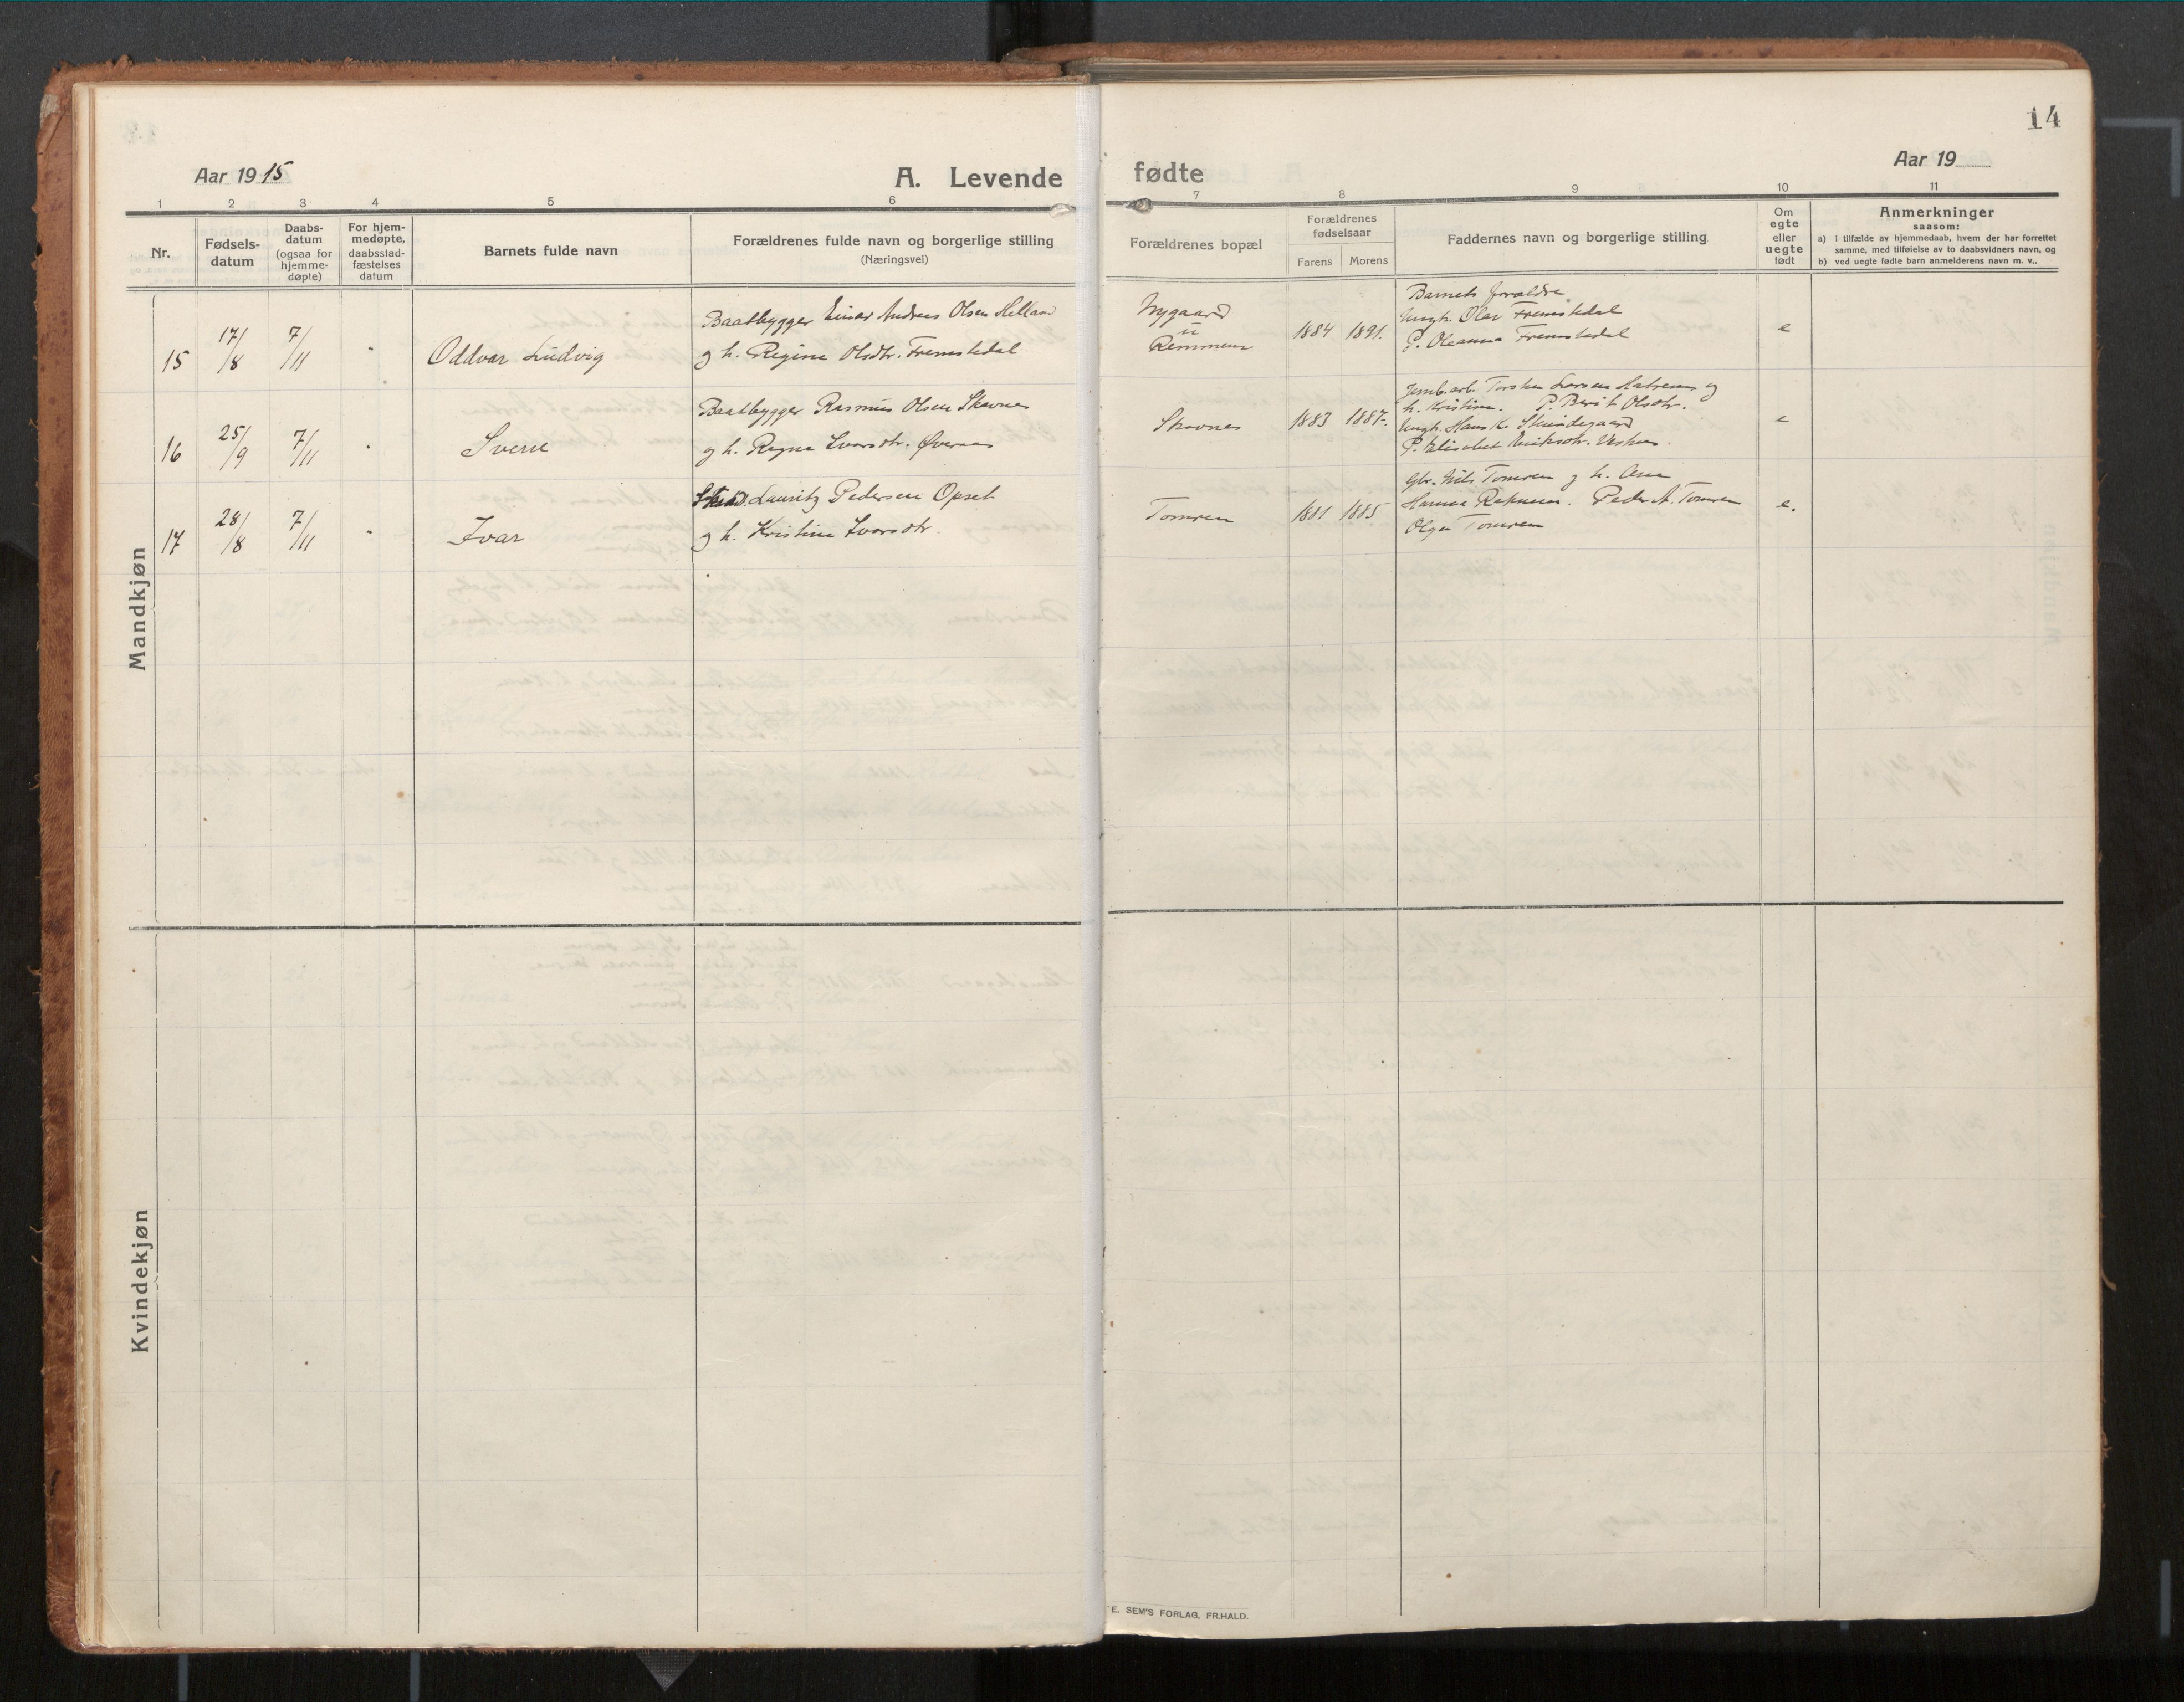 14
Aar 1915
A. Levende fødte
Aar 19
1 2 3 4 5 6 7 8 9 10 11
Nr.
Fødsels-
datum
Daabs-
datum
(ogsaa for
hjemme-
døpte)
For hjem-
medøpte,
daabsstad-
fæstelses
datum
Barnets fulde navn
Forældrenes fulde navn og borgerlige stilling
(Næringsvei)
Forældrenes bopæl
Forældrenes
fødselsaar
Farens Morens
Faddernes navn og borgerlige stilling
Om
egte
eller
uegte
født
Anmerkninger
saasom:
a) i tilfælde av hjemmedaab, hvem der har forrettet
samme, med tilføielse av to daabsvidners navn, og
b) ved uegte fødte barn anmelderens navn m. v..
Mandkjøn
15 17/8 7/11 " Oddvar Ludvig
Baatbygger Einar Andreas Olsen Helland
og h. Regine Olsdtr. Fremstedal
Nygaard
u
Remmem
1884 1891.
Barnets forældre
Ungk. Olav Fremstedal
P. Oleanna Fremstedal
e
16 25/9 7/11 " Sverre
Baatbygger Rasmus Olsen Skavnes
og h. Regna Ivarsdtr. Øveraas
Skavnes
1883 1887.
Jernb.arb. Torsten Larsen og
h. Kristine. P. Berit Olsdtr.
Ungk. Hans K. Skeidsgaard
P. Elisabet Eriksdtr. Vestnes
e
17 28/8 7/11 " Ivar
Lauritz Pedersen Opset
og h. Kristine Ivarsdtr.
Tomren
1881 1885
Gbr. Nils Tomren og h. Ane
Hanna Reknem. Peder A. Tomren
Olga Tomren
e.
Kvindekjøn
E. SEM'S FORLAG, FR.HALD.